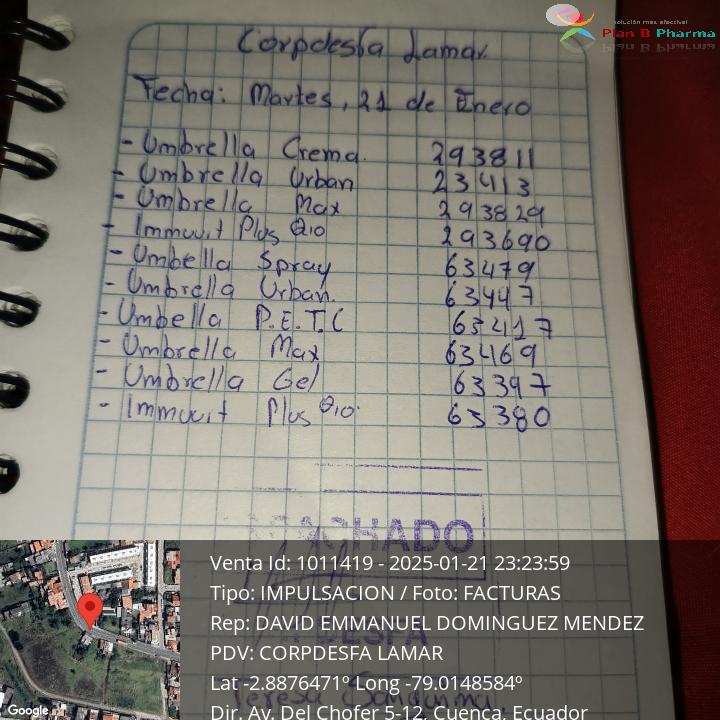 solución más efectiva!
Plan B Pharma
Corpdesfa Lamar.
Fecha: Martes, 21 de Enero
- Umbrella Crema. 293811
- Umbrella Urban 23413
- Umbrella Max 293829
- Immuvit Plus Q10 293690
- Umbella Spray 63479
- Umbrella Urban. 63447
- Umbella P.E.T.C 63417
- Umbrella Max 63469
- Umbrella Gel 63397
- Immuvit Plus Q10. 63380
MACHADO
Venta Id: 1011419 - 2025-01-21 23:23:59
Tipo: IMPULSACION / Foto: FACTURAS
Rep: DAVID EMMANUEL DOMINGUEZ MENDEZ
PDV: CORPDESFA LAMAR
Lat -2.8876471º Long -79.0148584º
Dir. Av. Del Chofer 5-12, Cuenca, Ecuador
Google